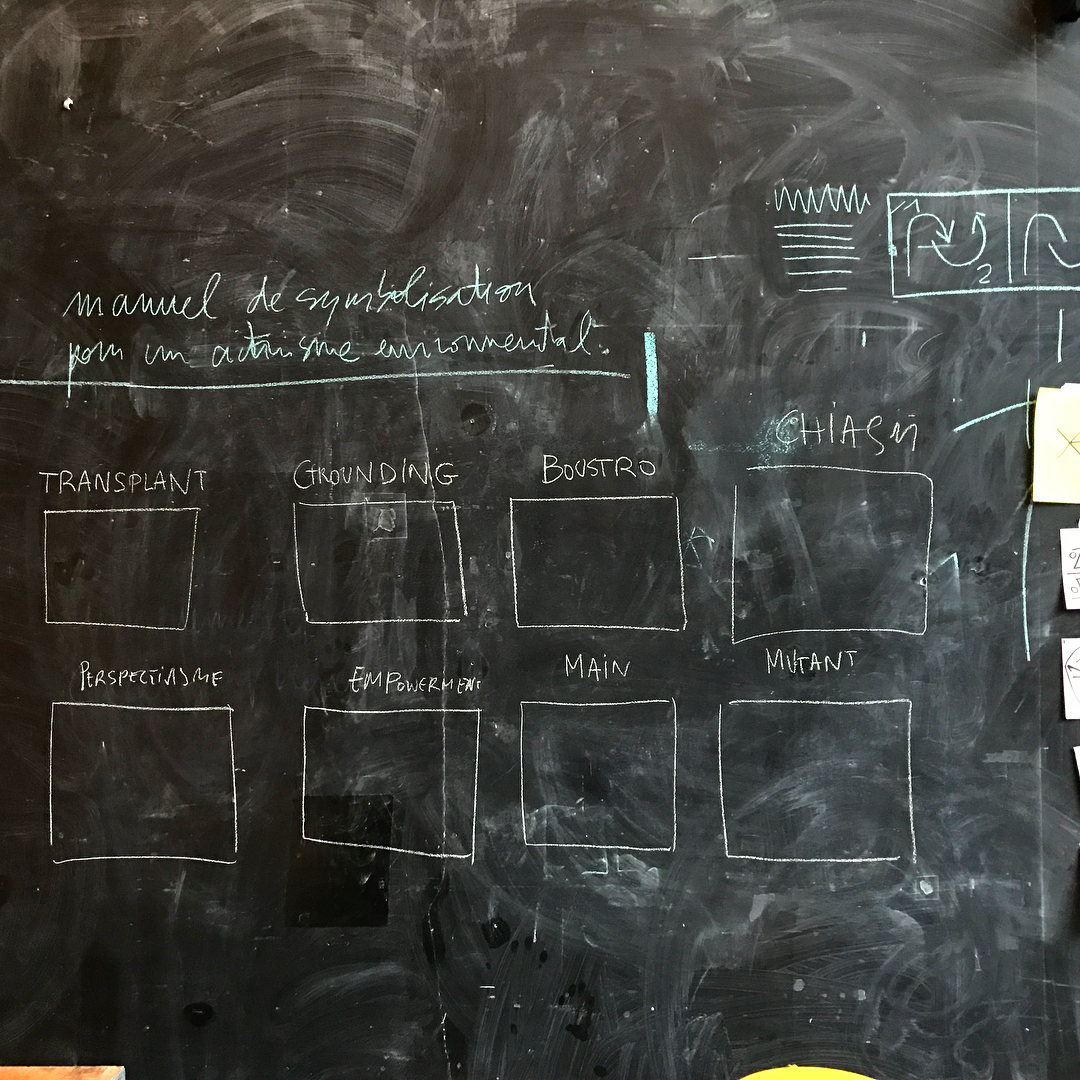 manuel de symbolisation
pour un activisme environmental.
TRANSPLANT
GROUNDING
BOUSTRO
CHIASM
PERSPECTIVISME
EMPOWERMENT
MAIN
MUTANT
1
2